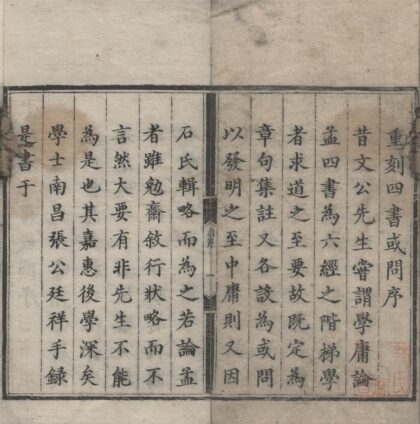 重刻四書或問序
昔文公先生嘗謂學庸論
孟四書為六經之階梯學
者求道之至要故既定為
章句集註又各設為或問
以發明之至中庸則又因
石氏輯略而為之若論孟
者雖勉齋敘行狀略而不
言然大要有非先生不能
為是也其嘉惠後學深矣
學士南昌張公廷祥手錄
是書于